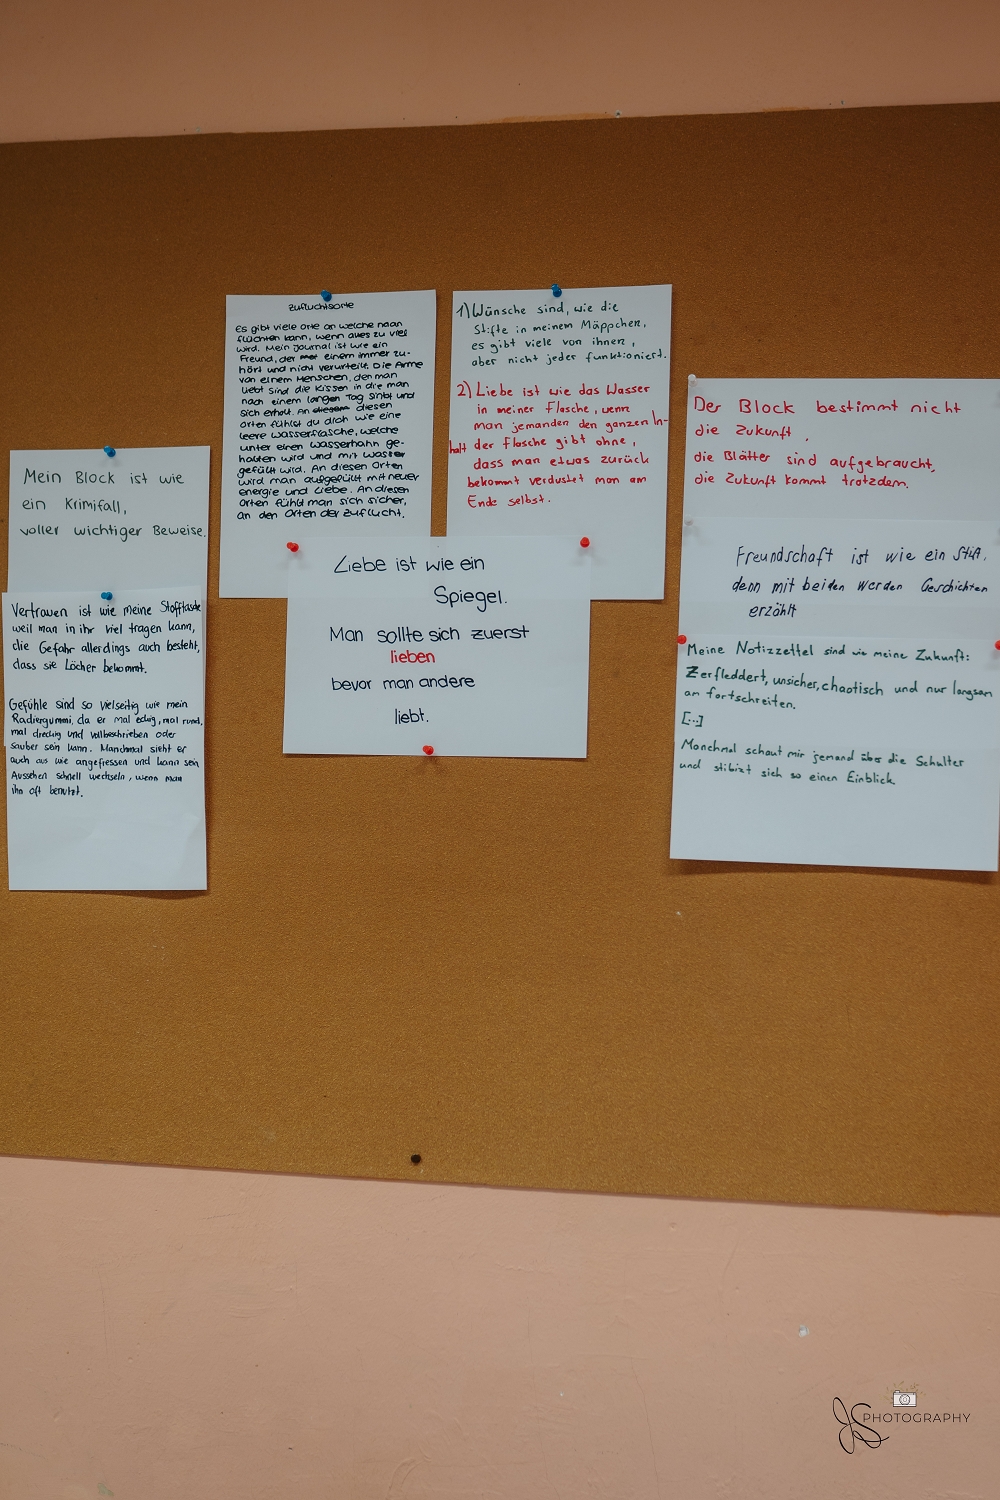 Mein Block ist wie
ein Krimifall,
voller wichtiger Beweise.
Vertrauen ist wie meine Stofftasche
weil man in ihr viel tragen kann,
die Gefahr allerdings auch besteht,
dass sie Löcher bekommt.
Gefühle sind so vielseitig wie mein
Radiergummi, da er mal eckig, mal rund,
mal dreckig und vollbeschrieben oder
sauber sein kann. Manchmal sieht er
auch aus wie angefressen und kann sein
Aussehen schnell wechseln, wenn man
ihn oft benutzt.
Zufluchtsorte
Es gibt viele orte an welche man
flüchten kann, wenn alles zu viel
wird. Mein Journal ist wie ein
Freund, der einem immer zu-
hört und nicht verurteilt. Die Arme
von einem Menschen, den man
liebt sind die Kissen in die man
nach einem langen Tag sinkt und
sich erholt. An diesen
Orten fühlst du dich wie eine
leere Wasserflasche, welche
unter einen Wasserhahn ge-
halten wird und mit Wasser
gefüllt wird. An diesen Orten
wird man aufgefüllt mit neuer
Energie und Liebe. An diesen
Orten fühlt man sich sicher,
an den Orten der Zuflucht.
1) Wünsche sind, wie die
Stifte in meinem Mäppchen,
es gibt viele von ihnen,
aber nicht jeder funktioniert.
2) Liebe ist wie das Wasser
in meiner Flasche, wenn
man jemanden den ganzen In-
halt der Flasche gibt ohne,
dass man etwas zurück
bekommt verdustet man am
Ende selbst.
Liebe ist wie ein
Spiegel.
Man sollte sich zuerst
lieben
bevor man andere
liebt.
Der Block bestimmt nicht
die Zukunft,
die Blätter sind aufgebraucht,
die Zukunft kommt trotzdem.
Freundschaft ist wie ein Stift,
denn mit beiden werden Geschichten
erzählt
Meine Notizzettel sind wie meine Zukunft:
Zerfleddert, unsicher, chaotisch und nur langsam
am fortschreiten.
[...]
Manchmal schaut mir jemand über die Schulter
und stibizt sich so einen Einblick.
JS PHOTOGRAPHY